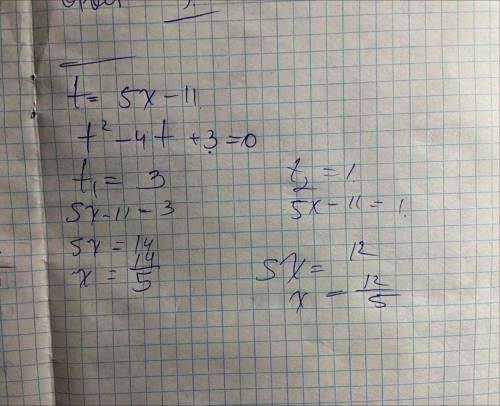 t = 5x - 11
t² - 4t + 3 = 0
t₁ = 3
5x - 11 = 3
5x = 14
x = 14/5
t₂ = 1
5x - 11 = 1
5x = 12
x = 12/5